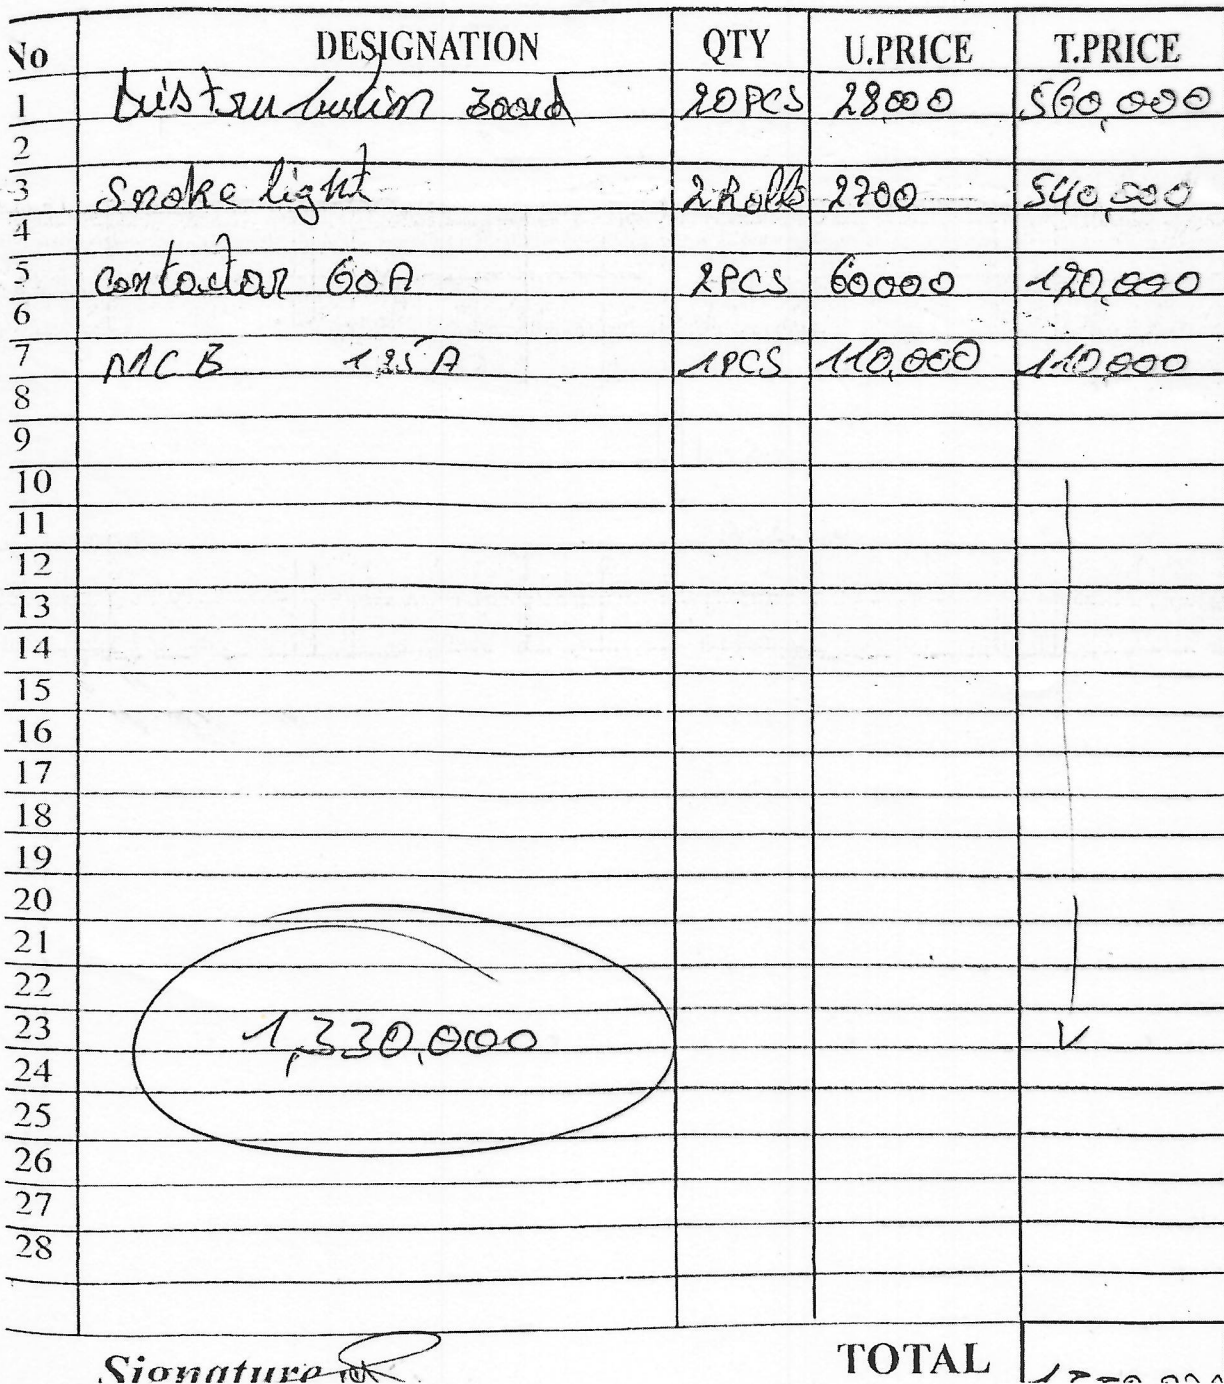 No DESIGNATION QTY U.PRICE T.PRICE
1 Distribution Board 20PCS 28000 560,000
2
3 Snake light 2Rolls 2700 540,000
4
5 contactor 60A 2PCS 60000 120,000
6
7 MCB 125A 1PCS 110,000 110,000
8
9
10
11
12
13
14
15
16
17
18
19
20
21
22
23 1,330,000
24
25
26
27
28
Signature TOTAL